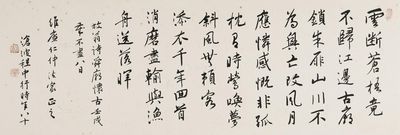 雲斷蒼梧竟
不歸江邊古廟
鎖朱扉山川不
為興亡改風月
應憐感慨非孤
枕有時鶯喚夢
斜風無賴客
添衣千年回首
消磨盡輸與漁
舟送落暉
放翁詩舜廟懷古壬戌
春不盡八日
維廣仁仲法家正之
滄波程中行時年八十